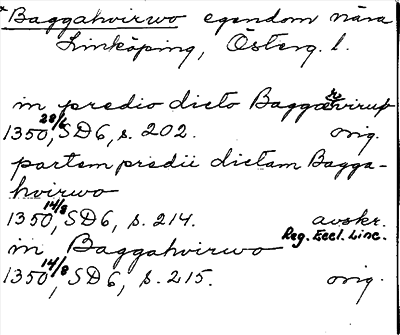 Baggahvirwo egendom nära
Linköping, Österg. l.
in predio dicto Baggahvirup
1350 28/6, SD6, s. 202. orig.
partem predii dictam Bagga-
hvirwo
1350 14/8, SD6, s. 214. avskr.
Reg. Eccl. Linc.
in Baggahvirwo
1350 14/8, SD6, s. 215. orig.